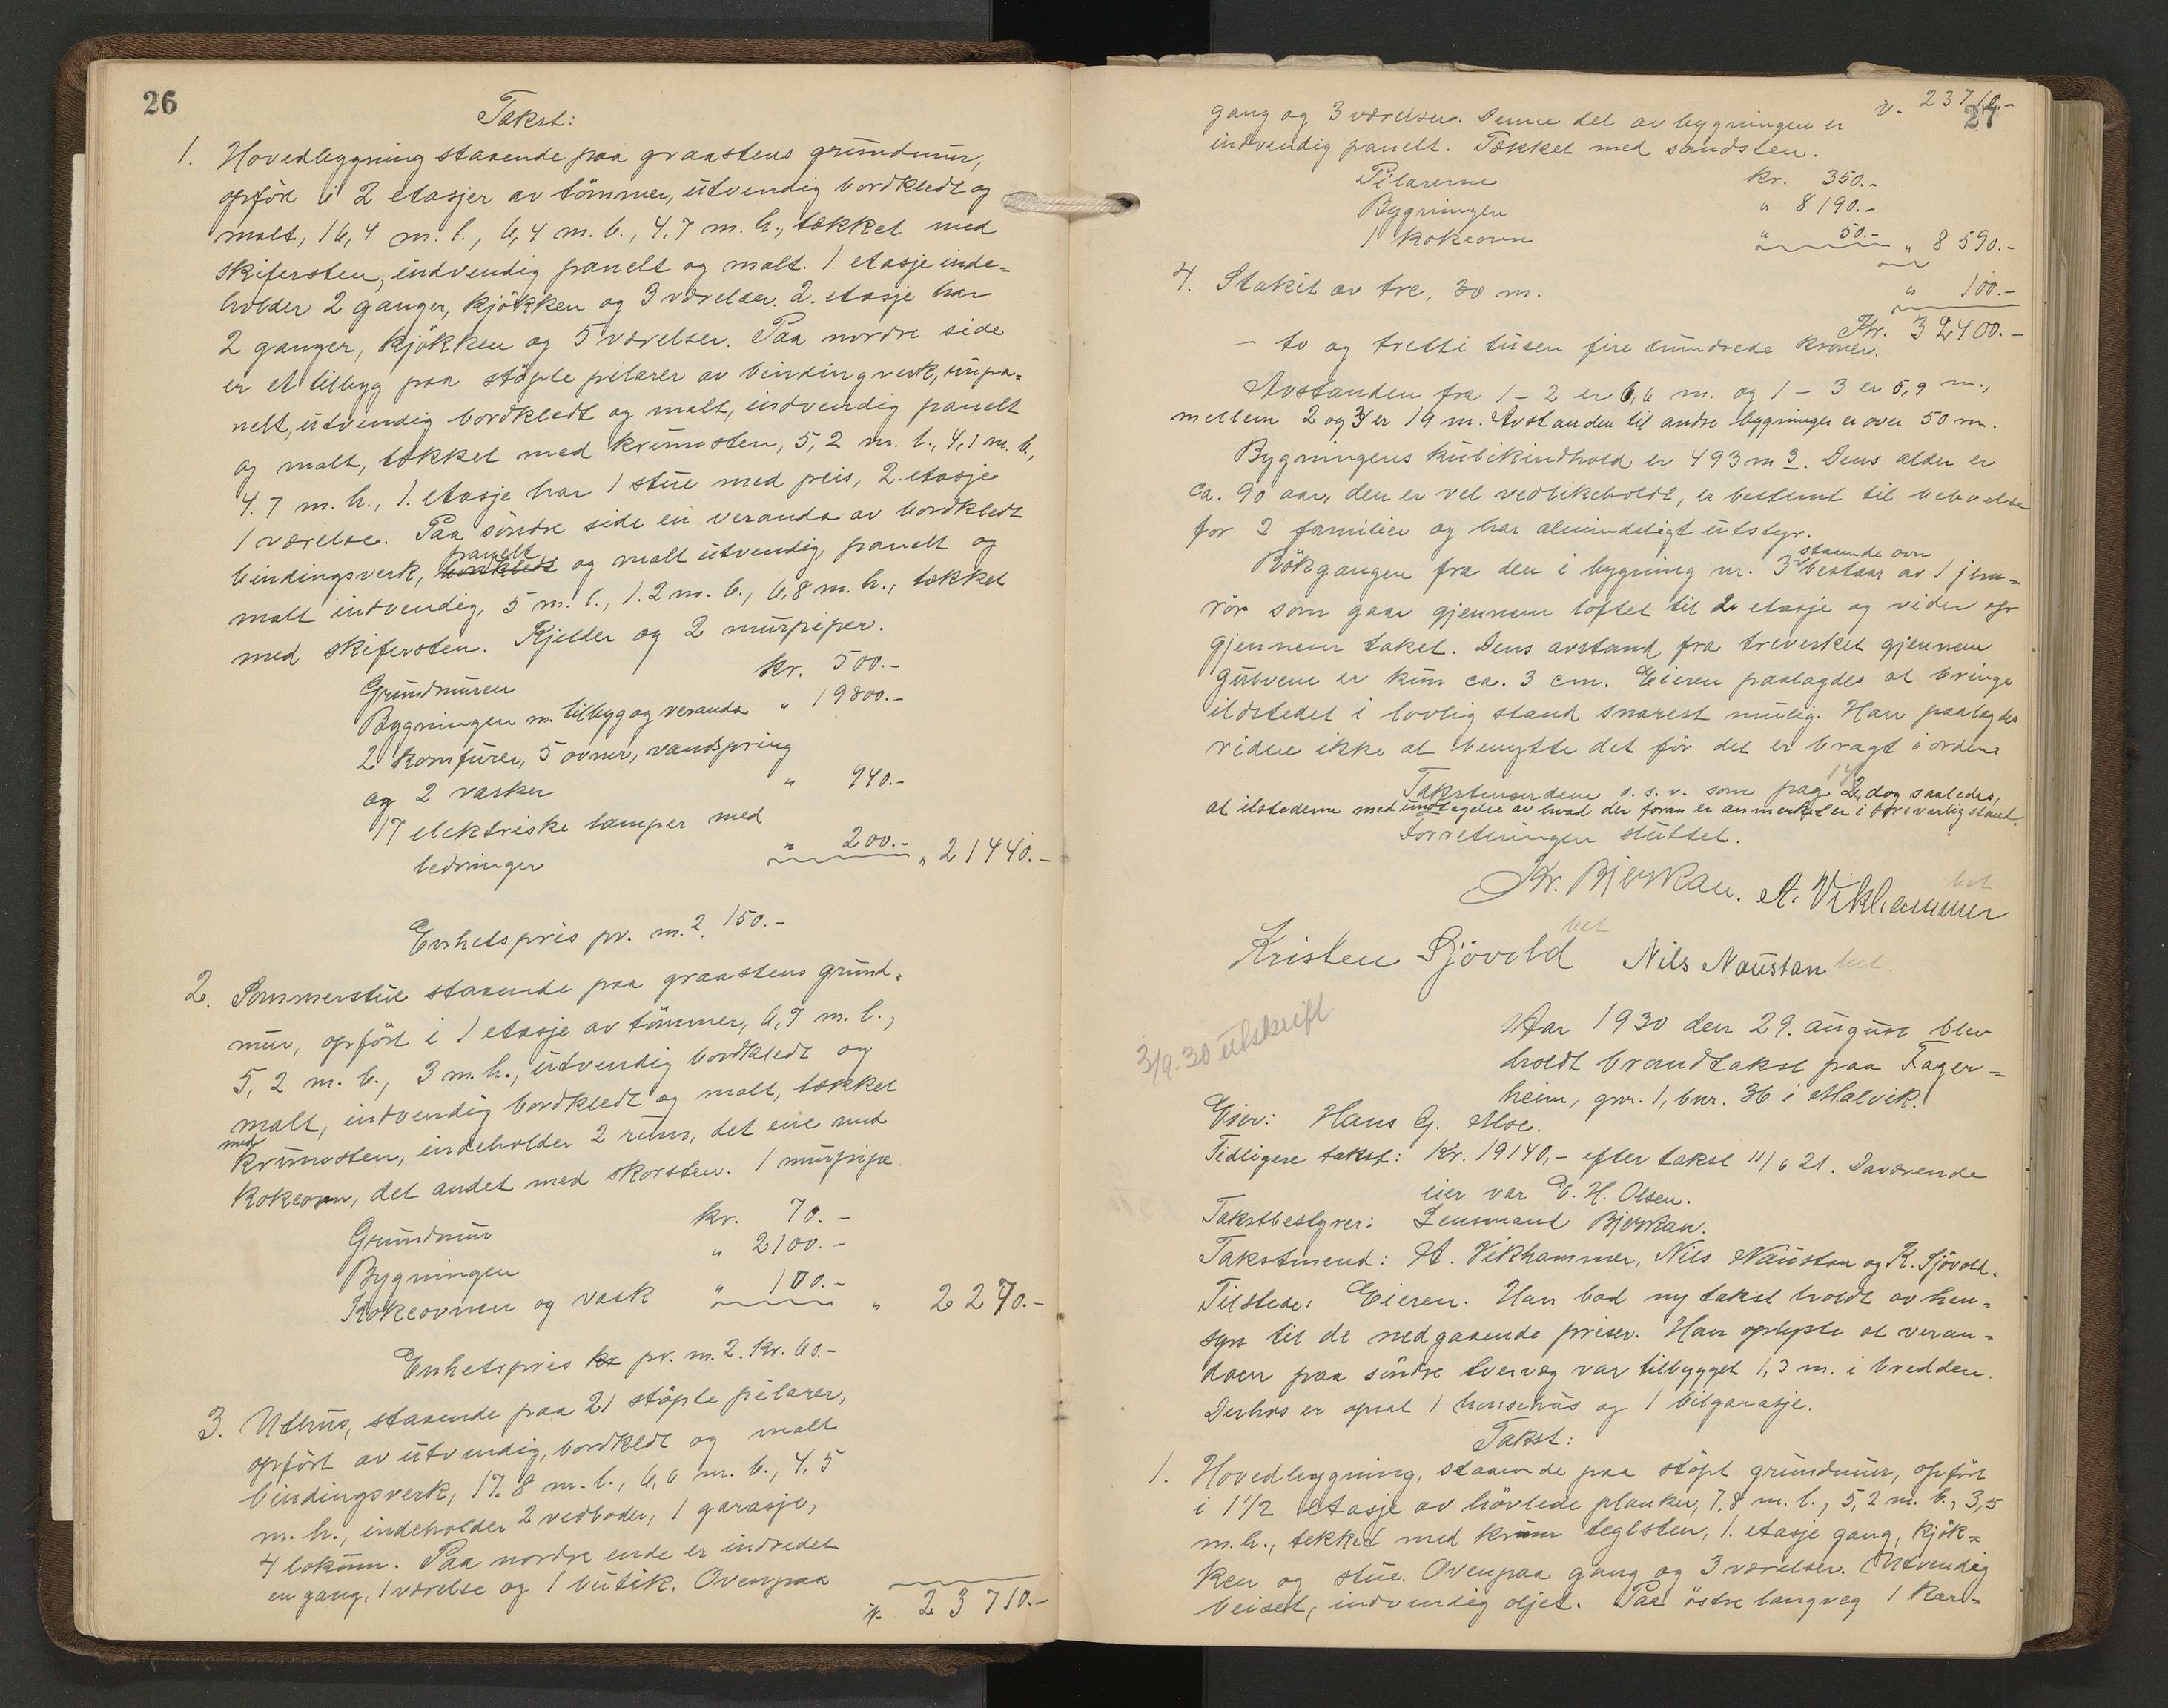 26
Takst:
1. Hovedbygning staaende paa graastens grundmur,
opført i 2 etasjer av tömmer, utvendig bordkledt og
malt, 16,4 m. l., 6,4 m. b., 4,7 m. h., tekket med
skifersten, indvendig panelt og malt. 1. etasje inde=
holder 2 ganger, kjökken og 3 værelser. 2. etasje har
2 ganger, kjökken og 5 værelser. Paa nordre side
er et tilbyg paa stöpte pilarer av bindingverk, unpa=
nelt, utvendig bordkledt og malt, indvendig panelt
og malt, tekket med krumsten, 5,2 m. l., 4,1 m. b.,
4.7 m. h., 1. etasje har 1 stue med peis, 2. etasje
1 værelse. Paa söndre side en veranda av bordkledt
bindingsverk, bordkledt panelt og malt utvendig, panelt og
malt indvendig, 5 m. l., 1.2 m. b., 6,8 m. h., tekket
med skifersten. Kjelder og 2 murpiper.
Grundmuren kr. 500.-
Bygningen m. tilbyg og veranda " 19800.-
2 komfurer, 5 ovner, vandspring
og 2 vasker " 940.-
17 elektriske lamper med
ledninger " 200.- " 21440.-
Enhetspris pr. m.2. 150.-
2. Sommerstue staaende paa graastens grund=
mur, opfört i 1 etasje av tömmer, 6,7 m. l.,
5,2 m. b., 3 m. h., utvendig bordkledt og
malt, indvendig bordkledt og malt, tekket
med krumsten, indeholder 2 rum, det ene med
kokeovn, det andet med skorsten. 1 murpipe.
Grundmur kr. 70.-
Bygningen " 2100.-
Kokeovnen og vask " 100.- " 2270.-
Enhetspris kr pr. m.2. Kr. 60.-
3. Uthus, staaende paa 21 stöpte pilarer,
opfört av utvendig, bordkledt og malt
bindingsverk, 17.8 m. l., 6,6 m. b., 4,5
m. h., indeholder 2 vedboder, 1 garasje,
4 lokum. Paa nordre ende er indredet
en gang, 1 værelse og 1 butik. Ovenpaa
23710.-
27
23710.-
gang og 3 værelser. Denne del av bygningen er
indvendig panelt. Tekket med sandsten.
Pilarerne kr. 350.-
Bygningen " 8190.-
1 kokeovn " 50.- " 8590.-
4. Stakit av tre, 30 m. " 100.-
Kr. 32400.-
- to og tretti tusen fire hundrede kroner.
Avstanden fra 1 - 2 er 6,6 m. og 1 - 3 er 5,9 m.,
mellem 2 og 3 er 19 m. Avstanden til andre bygninger er over 50 m.
Bygningens kubikindhold er 493 m3. Dens alder er
ca. 90 aar, den er vel vedlikeholdt, er bestemt til beboelse
for 2 familier og har almindeligt utstyr.
Rökgangen fra den i bygning nr. 3 staaende ovn bestaar av 1 jern=
rör som gaar gjennem loftet til 2 etasje og videre op
gjennem taket. Dens avstand fra treverket gjennem
gulvene er kun ca. 3 cm. Eieren paalagdes at bringe
ildstedet i lovlig stand snarest mulig. Han paalagdes
videre ikke at benytte det för det er bragt i orden.
Takstmændene o. s. v. som pag 14, dog saaledes,
at ilstederne med undtagelse av hvad der foran er anmerket er i forsvarlig stand.
Forretningen sluttet.
Kr. Bjerkan. A. Vikhammer bet
Kristen Sjövold bet Nils Naustan bet.
3/9.30 utskrift.
Aar 1930 den 29. august blev
holdt brandtakst paa Fager=
heim, gnr. 1, bnr. 36 i Malvik.
Eier: Hans G. Moe.
Tidligere takst: Kr. 19140,- efter takst 11/6 21. Daværende
eier var E. H. Olsen.
Takstbestyrer: Lensmand Bjerkan.
Takstmend: A. Vikhammer, Nils Naustan og K. Sjövold.
Tilstede: Eieren. Han bad ny takst holdt av hen=
syn til de nedgaaende priser. Han oplyste at veran=
daen paa söndre tverveg var tilbygget 1,3 m. i bredden.
Derhos er opsat 1 hönsehus og 1 bilgarasje.
Takst:
1. Hovedbygning, staaende paa stöpt grundmur, opfört
i 1 1/2 etasje av hövlede planker, 7,8 m. l., 5,2 m. b., 3,5
m. h., tekket med krum teglsten, 1. etasje gang, kjök=
ken og stue. Ovenpaa gang og 3 værelser. Utvendig
beiset, indvendig oljet. Paa östre langveg 1 kar=